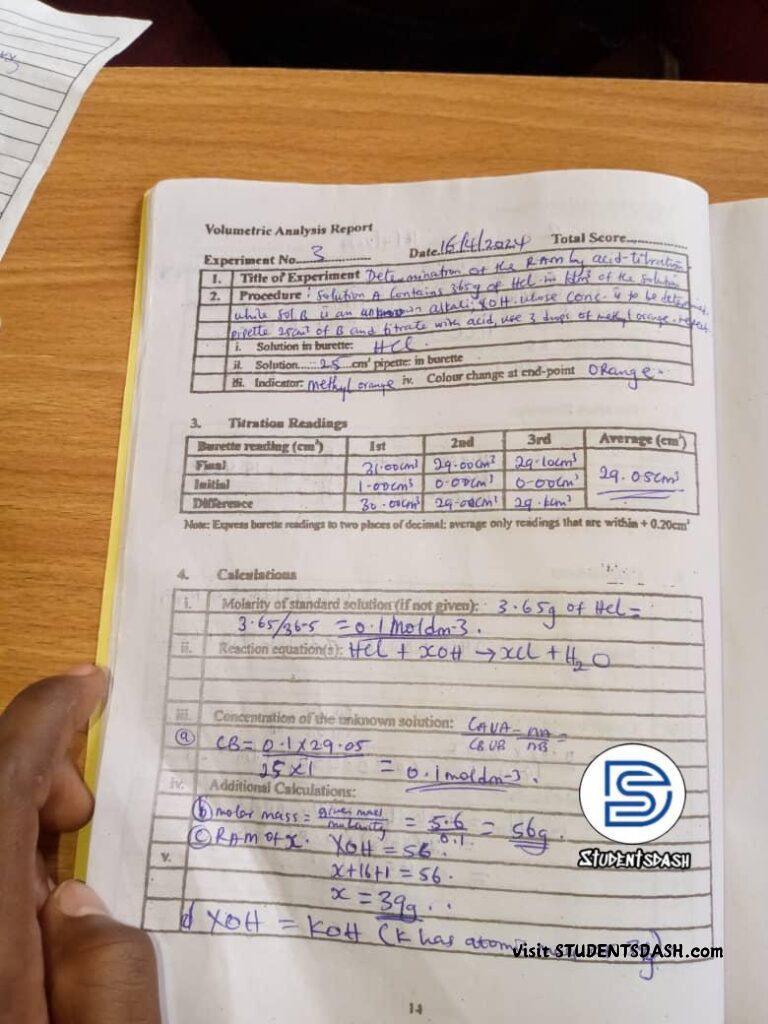 Volumetric Analysis Report
Experiment No. 3 Date. 16/4/2024 Total Score
1. Title of Experiment Determination of the RAM by acid-titration.
2. Procedure: Solution A Contains 3.65g of HCl in 1dm³ of the solution
while sol B is an unknown alkali, XOH whose conc is to be
pipette 25cm³ of B and titrate with acid, use 3 drops of methyl orange.
i. Solution in burette: HCl.
ii. Solution......25..cm³ pipette: in burette
iii. Indicator: methyl orange iv. Colour change at end-point ORange.
3. Titration Readings
Burette reading (cm³) 1st 2nd 3rd Average (cm³)
Final 31.00cm³ 29.00cm³ 29.10cm³ 29.05cm³
Initial 1.00cm³ 0.00cm³ 0.00cm³
Difference 30.00cm³ 29.00cm³ 29.1cm³
Note: Express burette readings to two places of decimal; average only readings that are within + 0.20cm³
4. Calculations
i. Molarity of standard solution (if not given): 3.65g of HCl =
3.65/36.5 = 0.1 Moldm-3.
ii. Reaction equation(s): HCl + XOH → XCl + H₂O
iii. Concentration of the unknown solution: CAVA = nA =
CBVB nB
(a) CB = 0.1 x 29.05
25 x 1 = 0.1 moldm-3.
iv. Additional Calculations:
(b) molar mass = given mass = 5.6 = 56g.
molarity 0.1
(c) RAM of X. XOH = 56
v. X+16+1 = 56.
X = 39g..
d XOH = KOH (K has
14
STUDENTSDASH
visit STUDENTSDASH.com